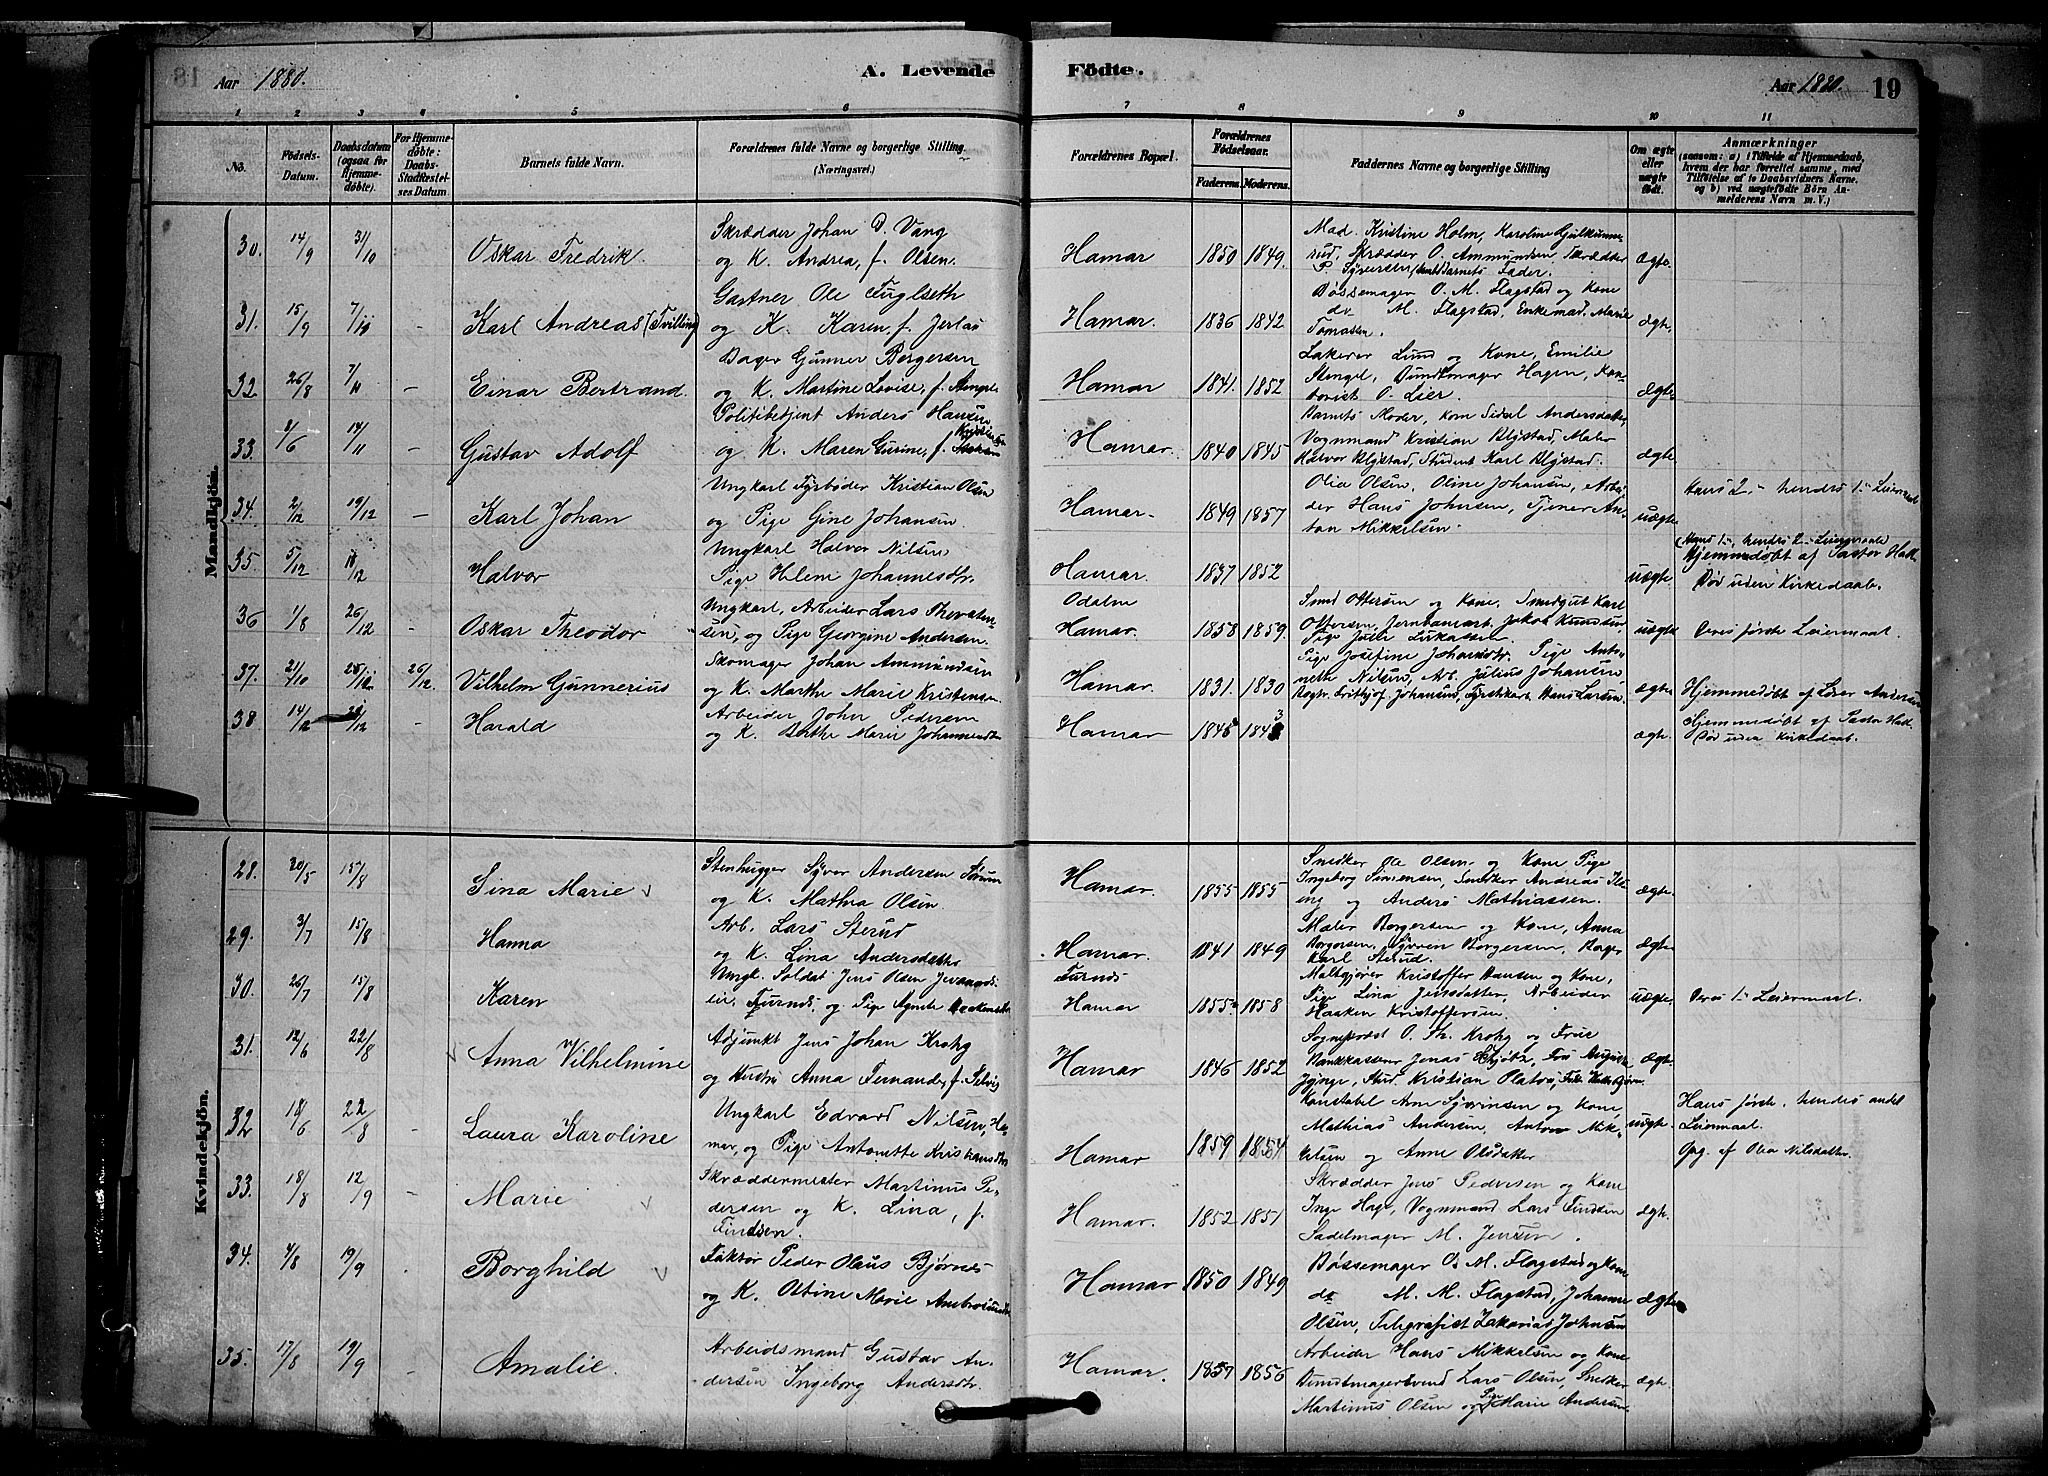 18
Aar 1880.
A. Levende Födte.
Aar 1880.
19
1 2 3 4 5 6 7 8 9 10 11
No.
Födsels-Datum.
Daabsdatum (ogsaa for Hjemmedöbte).
For Hjemmedöbte: Daabs-Stadfæstelses Datum
Barnets fulde Navn.
Forældrenes fulde Navne og borgerlige Stilling. (Næringsvei.)
Forældrenes Bopæl.
Forældrenes Födselsaar.
Faderens. Moderens.
Faddernes Navne og borgerlige Stilling
Om ægte eller uægte födt.
Anmærkninger
(saasom: a) i Tilfælde af Hjemmedaab, hvem der har forrettet samme, med Tilföielse af to Daabsvidners Navne, og b) ved uægtefödte Börn Anmelderens Navn m. V.)
Mandkjön.
30. 14/9 31/10 Oskar Fredrik.
Skrædder Johan D. Vang
og K. Andrea, f. Olsen.
Hamar 1850 1849.
Mad. Kristine Holm, Karoline
Skrædder O. Ammundsen Skrædder
P. Syversen, Barnets Fader.
ægte.
31. 15/9 7/11 - Karl Andreas (Tvilling)
Gartner Ole Fuglseth
og K. Karen, f.
Hamar. 1836 1842
Bøssemager O. M. Flagstad og Kone
do M. Flagstad, Enkemad. Marie
Tomassen.
ægte.
32 26/8 7/11 - Einar Bertrand.
Bager Gunner Borgersen
og K. Martine Lovise, f.
Hamar 1841. 1852
Lakerer Lund og Kone, Emilie
Stengel, Bundtmager Hagen, Kon-
torist O. Lier.
ægte
33. 8/6 14/11 - Gustav Adolf
Politibetjent Anders Hansen
og K. Maren Gurine, f.
Hamar. 1840 1845
Barnets Moder, Kone Sidsel Andersdatter
Vognmand Kristian Blystad, Maler
Halvor Blystad, Student Karl Blystad.
ægte
34. 2/12 19/12 - Karl Johan
Ungkarl Fyrbøder Kristian Olsen
og Pige Gine Johansen
Hamar. 1849 1857
Olia Olsen, Oline Johansen, Arbei-
der Hans Johnsen, Tjener An-
ton Mikkelsen.
uægte
Hans 2. - hendes 1. Leiermaal
35. 5/12 10/12 Halvor
Ungkarl Halvor Nilsen,
Pige Helene Johannesdtr.
Hamar. 1837 1852
uægte
Hans 1., hendes 2. Leiermaal.
Hjemmedøbt af Pastor
Død uden Kirkedaab.
36 1/8 26/12 - Oskar Theodor
Ungkarl, Arbeider Lars Thorsten-
sen, og Pige Georgine Andersen.
Odalen
Hamar. 1858 1859
Smed Ottersen og Kone, Smedgut Karl
Ottersen, Jernbanearb. Jakob Knudsen,
Pige Julie Lukassen.
uægte
Deres første Leiermaal.
37. 21/10 25/12 26/12 Vilhelm Gunnerius
Skomager Johan Ammundsen
og K. Marthe Marie Kristensen
Hamar. 1831. 1830
Pige Josefine Johansdtr. Pige Anto-
nette Nilsen, Arb. Julius Johansen,
Fritjof Johansen, Hans Larsen.
ægte
Hjemmedøbt af Lærer Andersen
38 14/12 /12 Harald
Arbeider John Pedersen
og K. Berthe Marie Johannesdtr.
Hamar 1848 1843
ægte.
Hjemmedøbt af Pastor
Død uden Kirkedaab.
Kvindekjön.
28. 20/5 15/8 Sina Marie
Stenhugger Syver Andersen Sørum
og K. Mathea Olsen.
Hamar. 1855 1855
Snedker Ole Olsen og Kone Pige
Ingeborg Simensen, Snedker Andreas
og Anders Mathiassen.
ægte.
29. 3/7 15/8 Hanna
Arb. Lars Sterud
og K. Lina Andersdatter
Hamar. 1841 1849
Maler Borgersen og Kone, Anna
Borgersen, Syveren Borgersen, Bager
Karl Sterud.
ægte
30. 26/7 15/8 Karen
Ungk. Soldat Jens Olsen
eie, Furnes, og Pige Agnete
Furnes
Hamar 1855 1858
Maltgjører Kristoffer Hansen og Kone,
Pige Lina Jensdatter, Arbeider
Haaken Kristoffersen.
uægte.
Deres 1. Leiermaal.
31. 12/6 22/8 Anna Vilhelmine
Adjunkt Jens Johan Krohg
og Hustru Anna Fernanda, f.
Hamar 1846 1852
Sogneprest O. Th. Krohg og Frue
Bankkasserer Jonas
Stud. Kristian
ægte.
32 18/6 22/8 Laura Karoline
Ungkarl Edvard Nilsen, Ha-
mar, og Pige Antonette Kristiansdtr.
Hamar 1859 1854
Konstabel Arne Syversen og Kone,
Mathias Andersen, Anton Mik-
kelsen og Anne
uægte
Hans første, hendes andet
Leiermaal.
Opg. af Olia Nilsdatter.
33. 18/8 12/9 - Marie
Skræddermester Martinus Pe-
dersen og K. Lina, f.
Findsen.
Hamar. 1852 1851
Skrædder Jens Pedersen og Kone
Inge Hage, Vognmand Lars Findsen
Sadelmager M. Jensen.
ægte.
34. 4/8 19/9 Borghild
Faktor Peder Olaus Bjørnes
og K. Olbine Marie
Hamar 1850 1849
Bøssemager O. M. Flagstad og Kone
do M. M. Flagstad, Johanne
Olsen, Telegrafist Zakarias Johnsen
ægte
35. 17/8 19/9 Amalie.
Arbeidsmand Gustav An-
dersen Ingeborg Andersdtr.
Hamar. 1857 1856
Arbeider Hans Mikkelsen og Kone
Bundtmagersvend Lars Olsen, Snedker
Martinus Olsen og Pige Marie Andersen.
ægte.